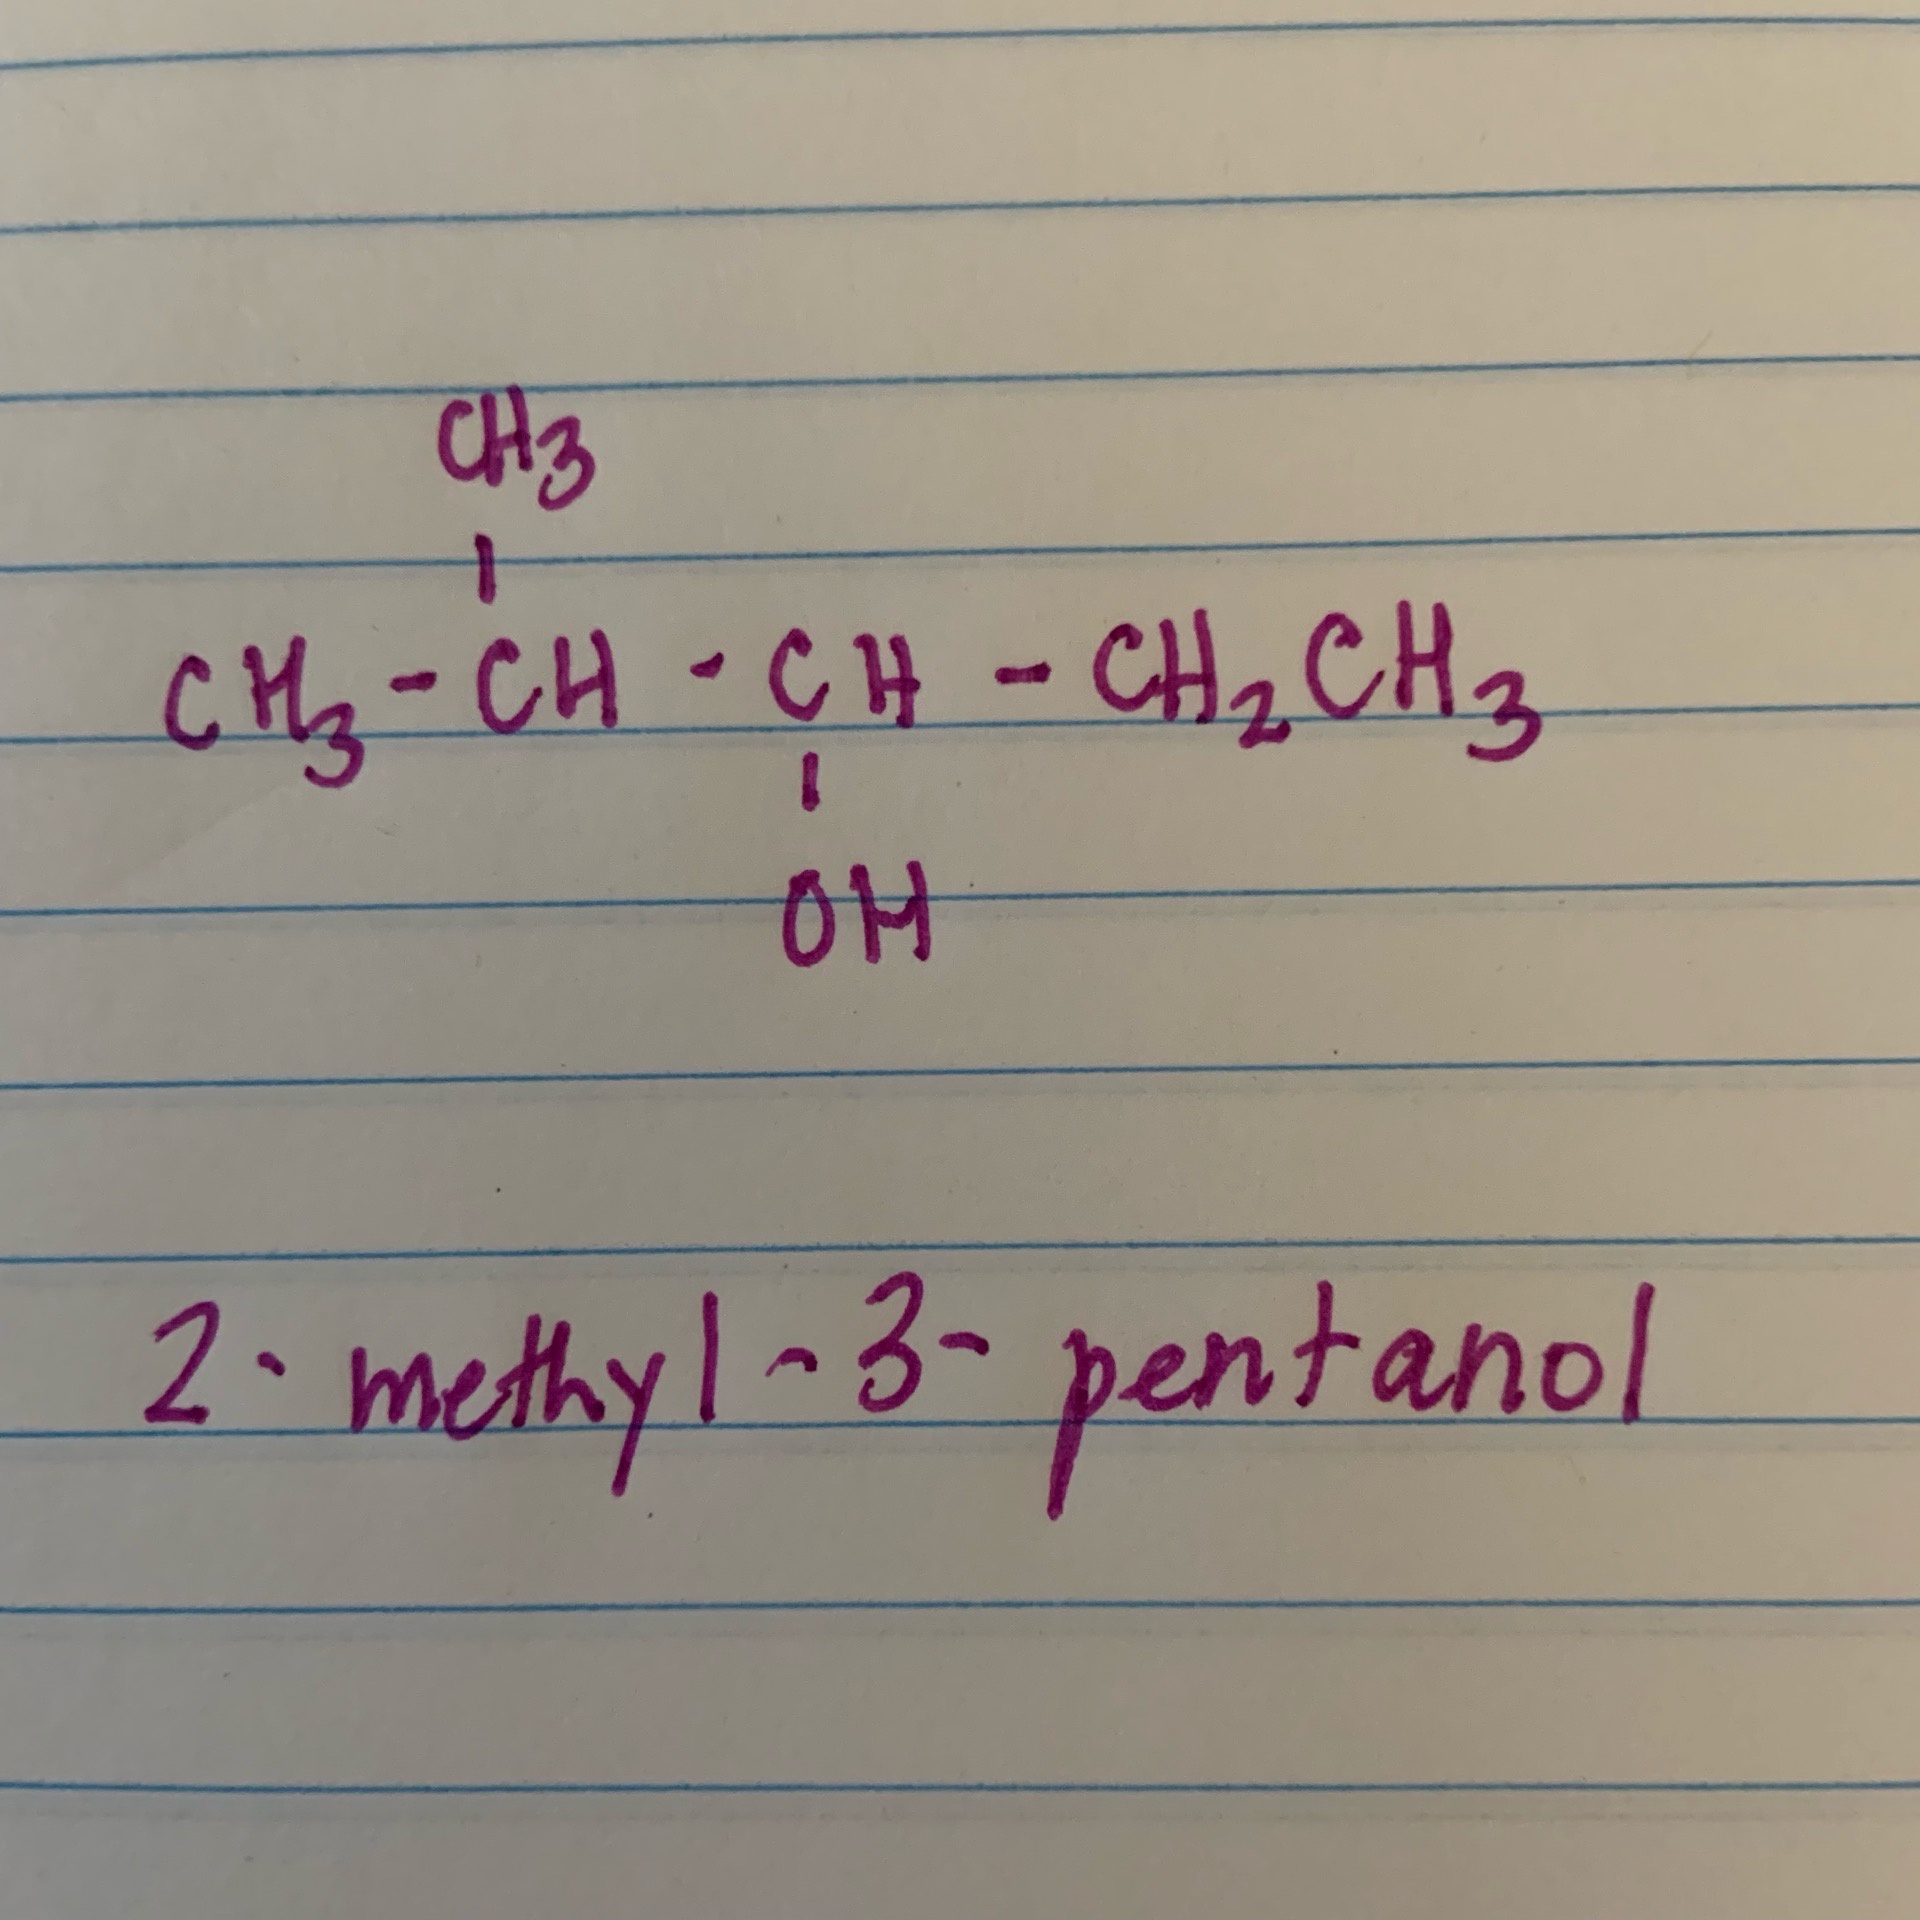 CH3
|
CH3 - CH - CH - CH2CH3
|
OH
2-methyl-3-pentanol